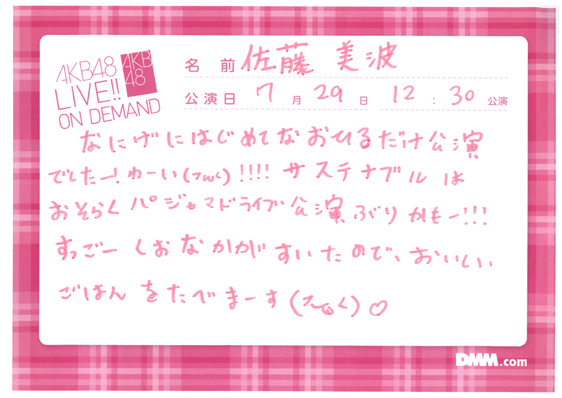 AKB48
LIVE!!
ON DEMAND
AKB
48
名 前 佐藤 美波
公演日 7月 29日 12:30 公演
なにげにはじめてなおひるだけ公演
でしたー!わーい(てへく)!!!! サステナブルは
おそらくパジャマドライブ公演ぶりかもー!!!
すっごーくおなかがすいたので、おいしい
ごはんをたべまーす( く)♡
DMM.com